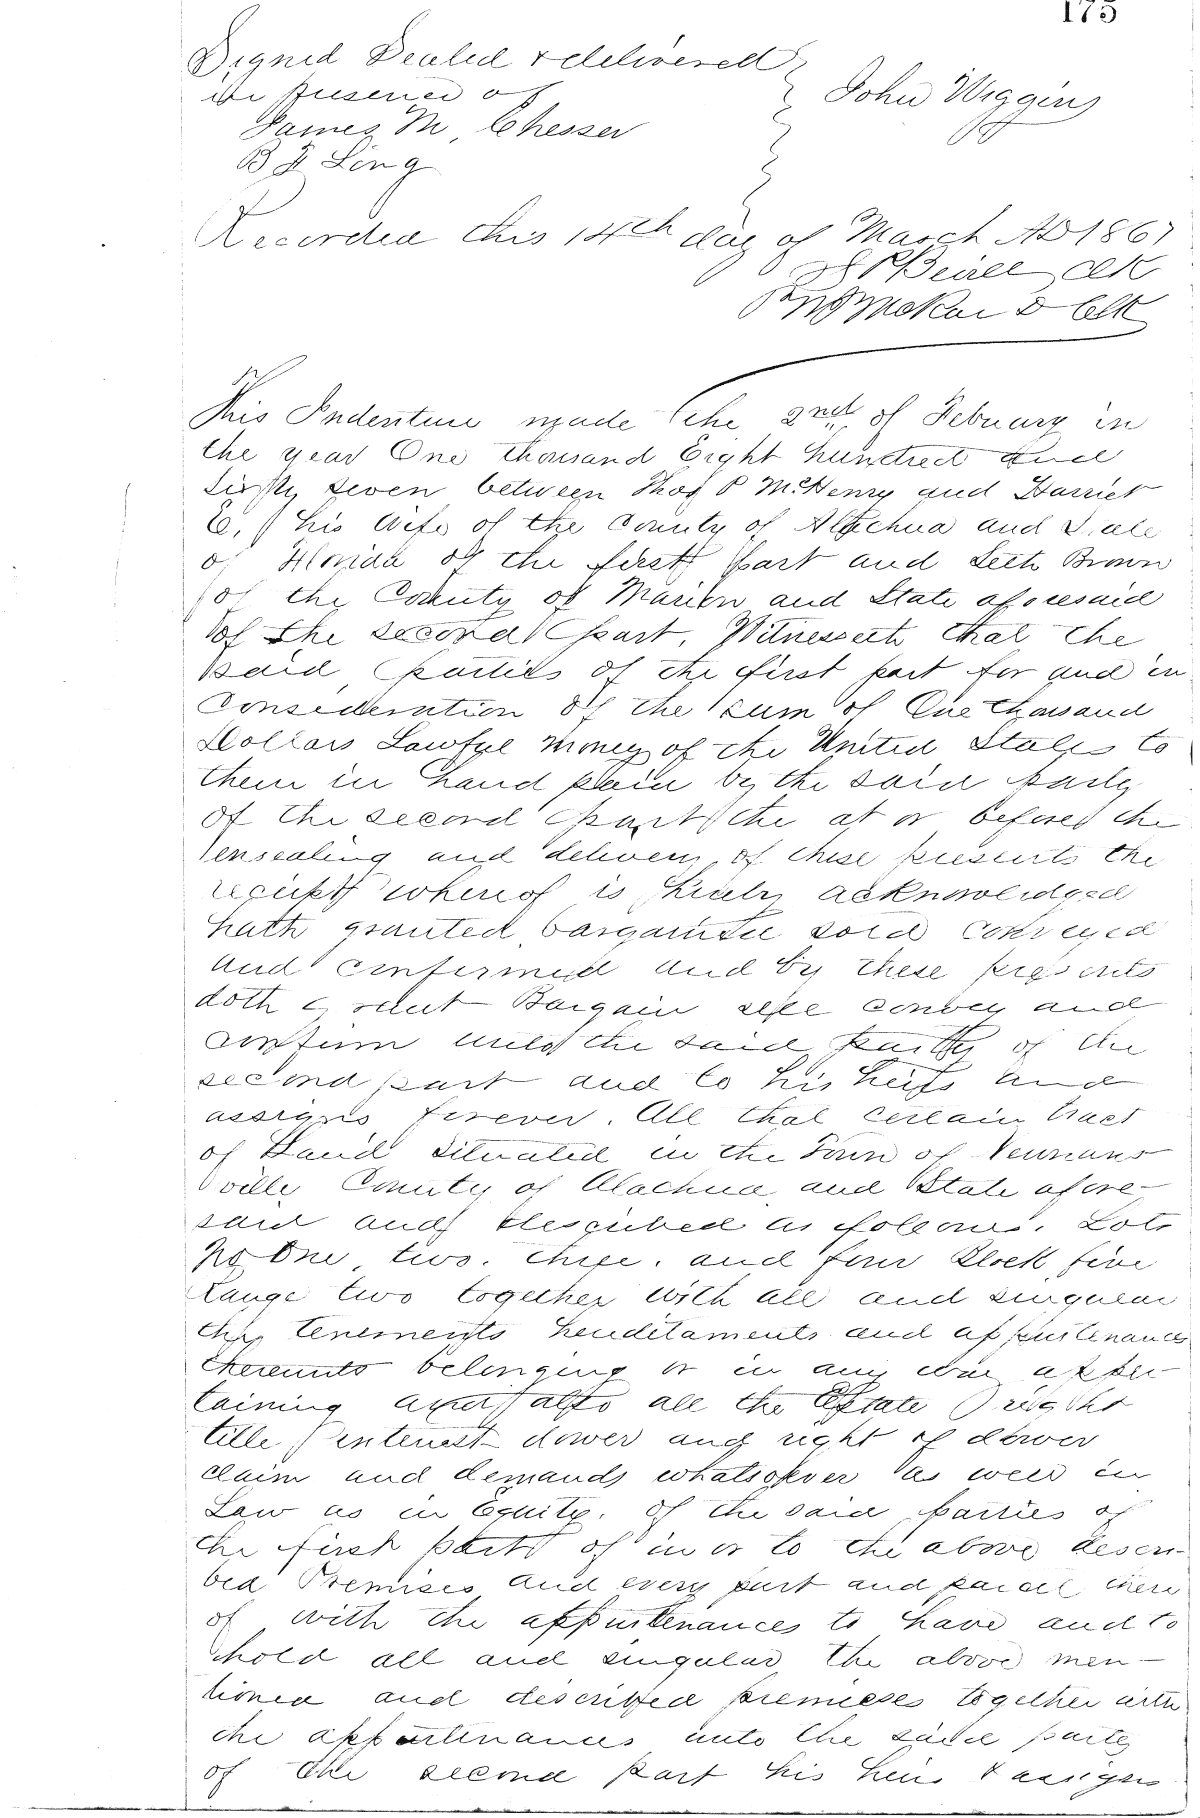 175
Signed Sealed & delivered
in presence of
John Wiggins
James M Chesser
B F Ling
Recorded this 14th day of March AD 1867
Clk
D Clk
This Indenture made the 2nd of Febuary in
the year One thousand Eight hundred and
sixty seven between Thos P McHenry and Harriet
E. his Wife of the County of Alachua and State
of Florida of the first part and Seth Brown
of the County of Marion and State aforesaid
of the second part, Witnesseth that the
said parties of the first part for and in
Consideration of the sum of One thousand
Dollars Lawful money of the United States to
them in hand paid by the said party
of the second part the at or before the
ensealing and delivery of these presents the
receipt whereof is hereby acknowledged
hath granted bargained sold conveyed
and confirmed and by these presents
doth grant Bargain sell convey and
confirm unto the said party of the
second part and to his heirs and
assigns forever. All that certain tract
of Land situated in the Town of Newnans
ville County of Alachua and State afore-
said and described as follows. Lots
No One, two. three. and four Block five
range two together with all and singular
the tenements hereditaments and appurtenances
thereunto belonging or in any wise apper-
taining and also all the Estate right
title interest dower and right of dower
claim and demands whatsoever as well in
Law as in Equity. of the said parties of
the first part of in or to the above descri-
bed Premises and every part and parcel there
of with the appurtenances to have and to
hold all and singular the above men-
tioned and described premises together with
the appurtenances unto the said party
of the second part his heirs & assigns